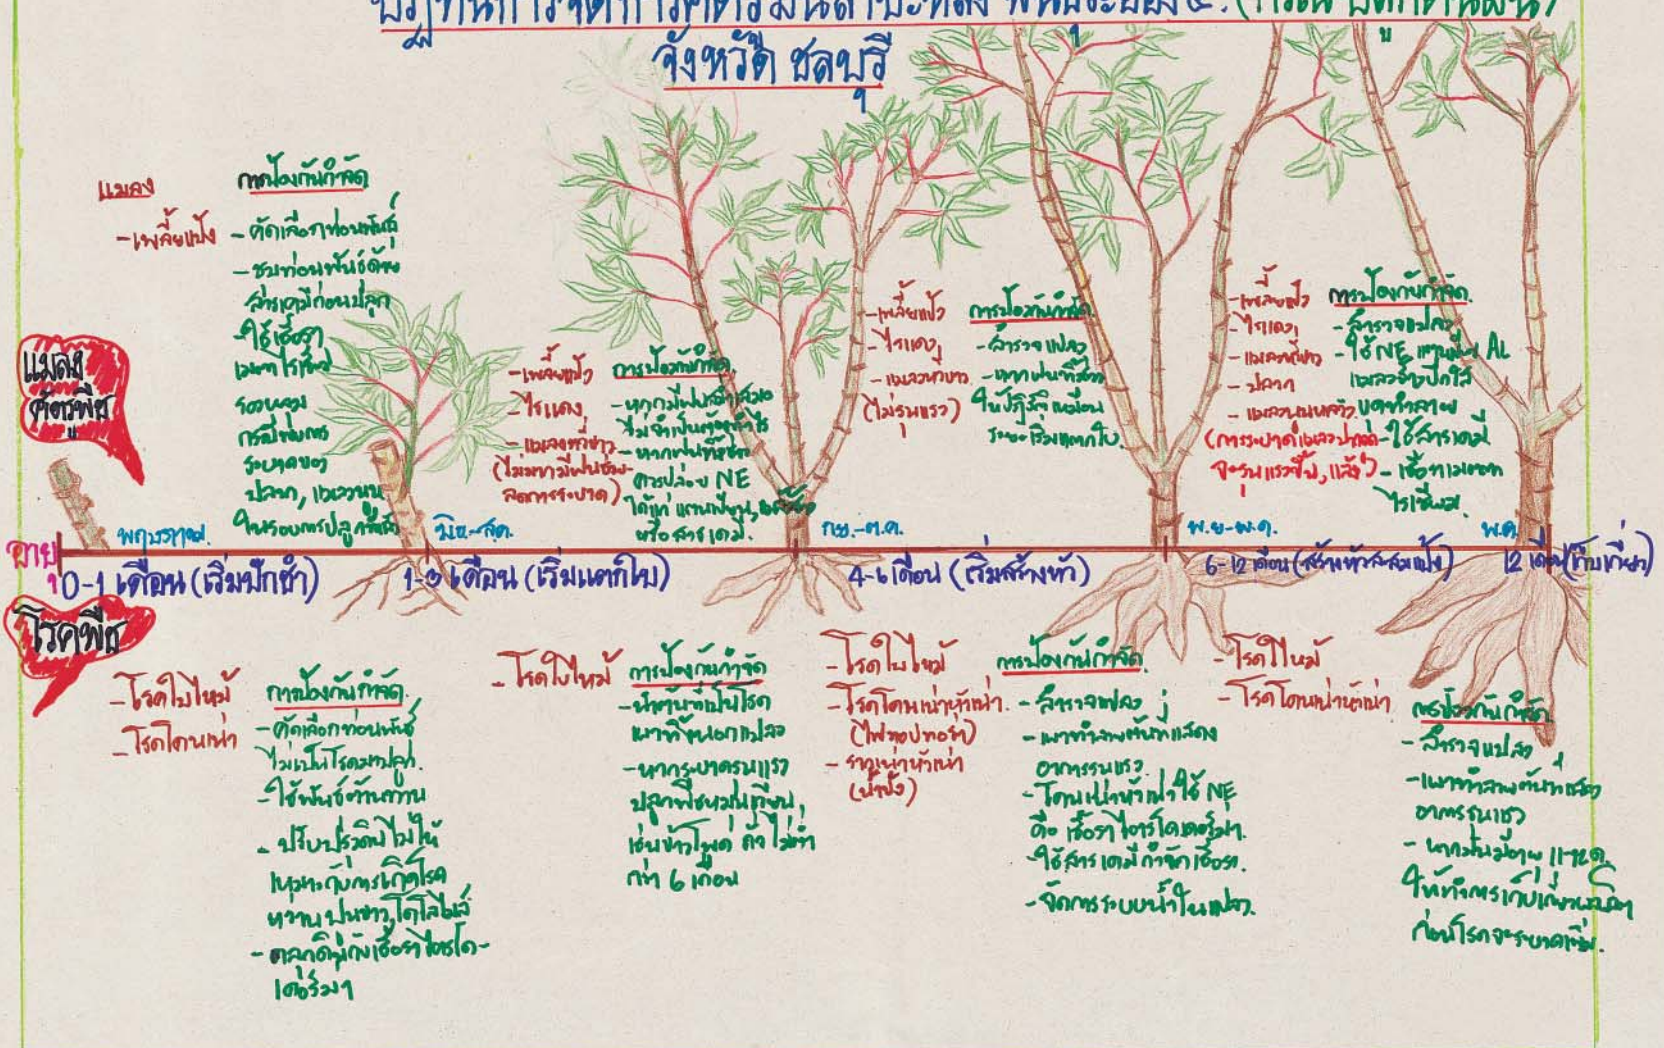 ปฏิทินการจัดการศัตรูมันสำปะหลัง พันธุ์ระยอง
จังหวัด ชลบุรี
แมลง
- เพลี้ยแป้ง
การป้องกันกำจัด
- คัดเลือกท่อนพันธุ์
- ชุบท่อนพันธุ์ด้วย
สารเคมีก่อนปลูก
- ใช้เชื้อรา
เมตาไรเซียม
รองหลุม
กรณีพบการ
ระบาดของ
ปลวก, แมลงนูน
ในรอบการปลูกที่แล้ว
แมลง
ศัตรูพืช
- เพลี้ยแป้ง
- ไรแดง
- แมลงหวี่ขาว
การป้องกันกำจัด
- หากมีฝนสม่ำเสมอ
ไม่จำเป็นต้อง
- หากฝนทิ้งช่วง
ควรปล่อย NE
ได้แก่ แตนเบียน,
หรือสารเคมี.
- เพลี้ยแป้ง
- ไรแดง
- แมลงหวี่ขาว
(ไม่รุนแรง)
การป้องกันกำจัด
- สำรวจแปลง
- หากฝนทิ้งช่วง
ให้ปฏิบัติเหมือน
ระยะเริ่มแตกใบ.
- เพลี้ยแป้ง
- ไรแดง
- แมลงหวี่ขาว
- ปลวก
- แมลงนูนหลวง
(การระบาดแมลงปากดูด
จะรุนแรงขึ้น, แล้ง)
การป้องกันกำจัด
- สำรวจแปลง
- ใช้ NE แตนเบียน AL
แมลงช้างปีกใส
- ใช้สารเคมี
- เชื้อราเมตตา
ไรเซียม
อายุ
พฤษภาคม.
มิ.ย.-ส.ค.
ก.ย.-ต.ค.
พ.ย-พ.ค.
พ.ค.
0-1 เดือน (เริ่มปักชำ)
1-3 เดือน (เริ่มแตกใบ)
4-6 เดือน (เริ่มสร้างหัว)
6-12 เดือน (สร้างหัวสะสมแป้ง)
12 เดือน (เก็บเกี่ยว)
โรคพืช
- โรคใบไหม้
- โรคโคนเน่า
การป้องกันกำจัด.
- คัดเลือกท่อนพันธุ์
ไม่เป็นโรคมาปลูก.
- ใช้พันธุ์ต้านทาน
- ปรับปรุงดินไม่ให้
เหมาะกับการเกิดโรค
หว่านปูนขาว, โดโลไมล์
- คลุกดินกับเชื้อราไตรโค-
เดอร์มา
- โรคใบไหม้
การป้องกันกำจัด
- นำต้นที่เป็นโรค
เผาทิ้งนอกแปลง
- หากระบาดรุนแรง
ปลูกพืชหมุนเวียน,
เช่นข้าวโพด ถั่ว ไม่ต่ำ
กว่า 6 เดือน
- โรคใบไหม้
- โรคโคนเน่าหัวเน่า.
(ไฟทอปทอร่า)
- รากเน่าหัวเน่า
การป้องกันกำจัด.
- สำรวจแปลง
- เผาทำลายต้นที่แสดง
อาการรุนแรง
- โคนเน่าหัวเน่าใช้ NE
คือ เชื้อราไตรโคเดอร์มา.
- ใช้สารเคมีกำจัดเชื้อรา.
- จัดการระบบน้ำในแปลง.
- โรคใบไหม้
- โรคโคนเน่าหัวเน่า
การป้องกันกำจัด
- สำรวจแปลง
- เผาทำลายต้นที่แสดง
อาการรุนแรง
- หากมันมีอายุ 11-12 ด.
ให้ทำการเก็บเกี่ยวผลผลิต
ก่อนโรคจะระบาดเพิ่ม.